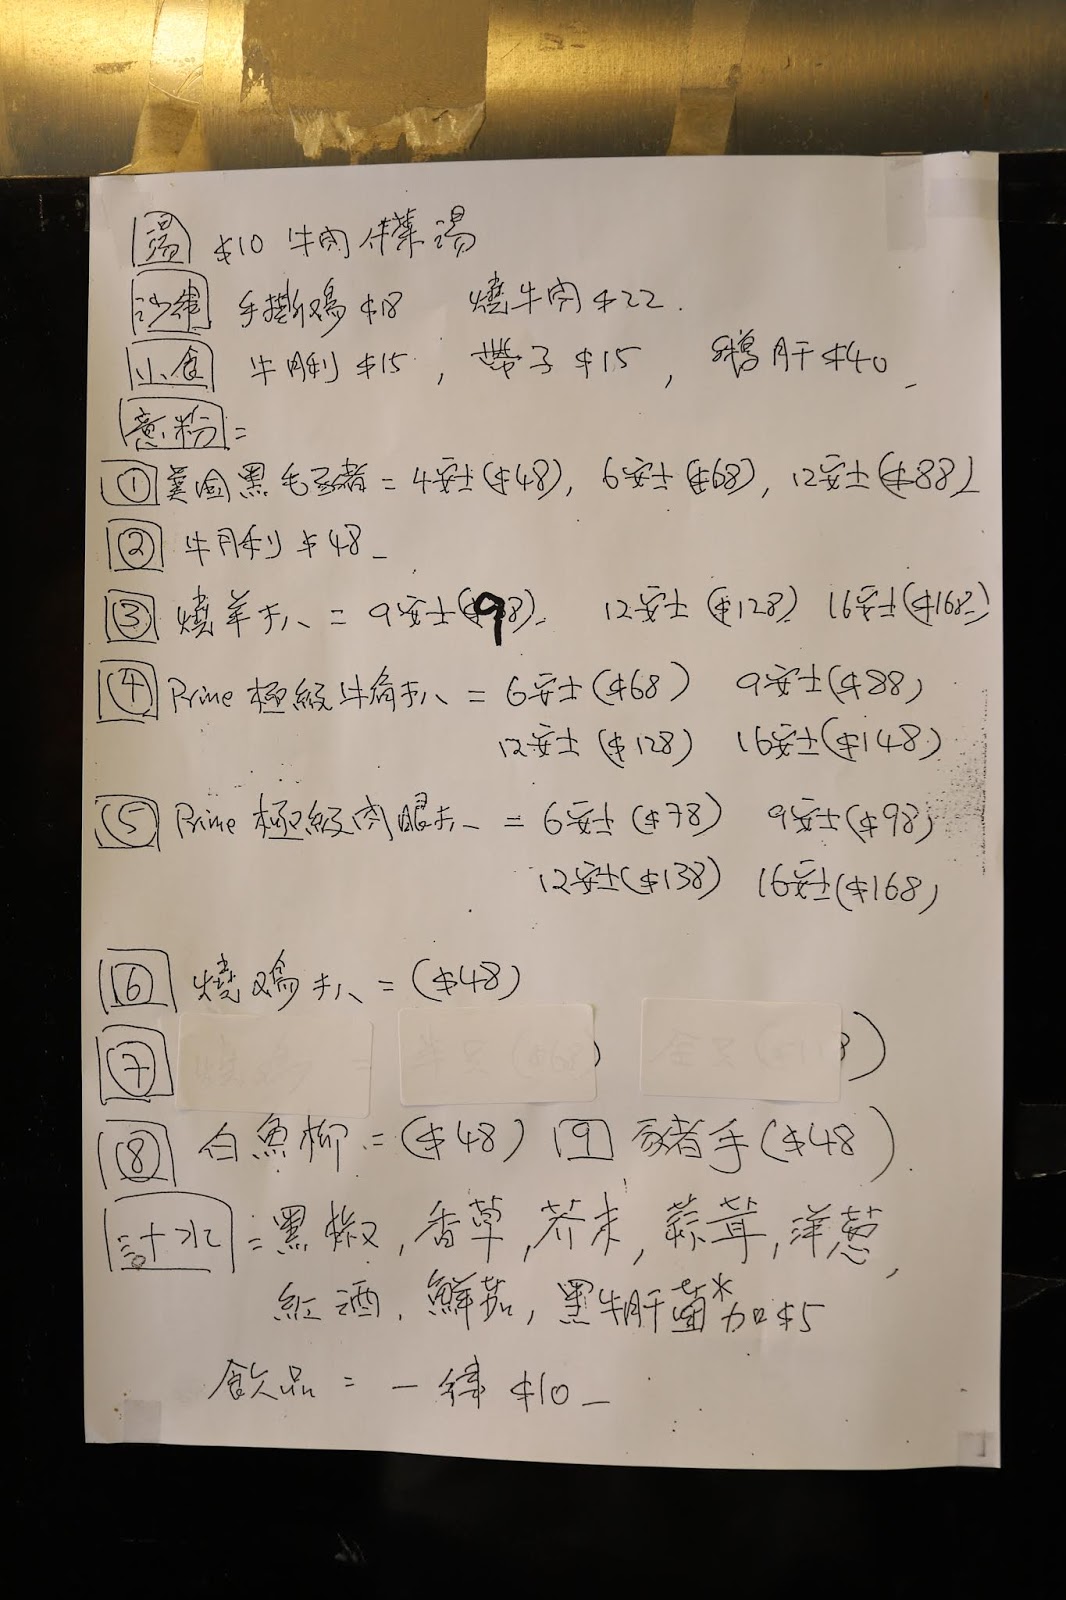 湯 $10 牛肉什菜湯
沙律 手撕鸡 $18 燒牛肉 $22.
小食 牛脷 $15, 帶子 $15, 鵝肝 $40
意粉 =
① 黑毛豬 = 4安士($48), 6安士($68), 12安士($88)
② 牛脷 $48
③ 燒羊扒 = 9安士($98) 12安士($128) 16安士($168)
④ Prime 極級牛角扒 = 6安士($68) 9安士($88)
12安士($128) 16安士($148)
⑤ Prime 極級肉眼扒 = 6安士($78) 9安士($98)
12安士($138) 16安士($168)
⑥ 燒鸡扒 = ($48)
⑦
⑧ 白魚柳 = ($48) 9 豬手($48)
汁水 = 黑椒, 香草, 芥末, 蒜茸, 洋葱,
紅酒, 鮮茄, 黑牛肝菌*加$5
飲品 = 一律 $10